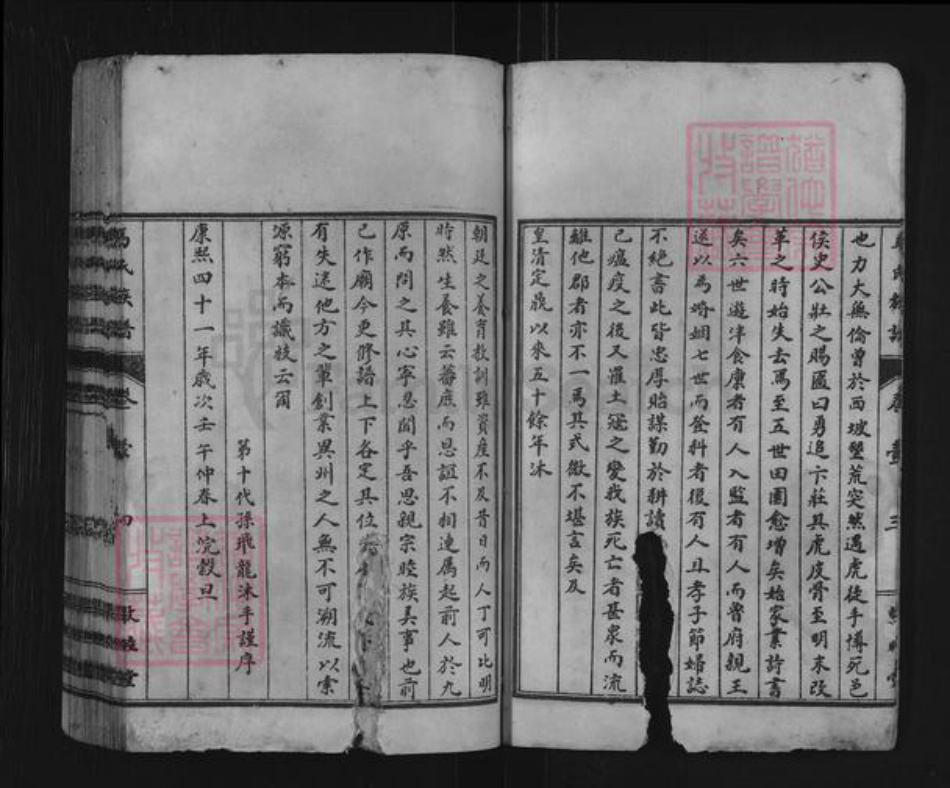 也力大無倫曾於西坡墾荒突然遇虎徒手博死邑
侯史公壯之賜匾曰勇追卞莊其虎皮骨至明末改
革之時始失去焉至五世田園愈增矣始家業詩書
矣六世遊泮食廩者有人入監者有人而晉府親王
送以為婚姻七世而登科者復有人且孝子節婦誌
不絕書此皆忠厚貽謀勤於耕讀
已瘟疫之後又罹土寇之變我族死亡者甚衆而流
離他郡者亦不一焉其式微不堪言矣及
皇清定鼎以來五十餘年沐
朝廷之養育教訓雖資產不及昔日而人丁可比明
時然生養雖云蕃庶而恩誼不相連属起前人於九
原而問之其心寧忍聞乎吾思親宗睦族美事也前
已作廟今更修譜上下各定其位
有失迷他方之輩創業異州之人無不可溯流以索
源窮本而識枝云爾
第十代孫飛龍沐手謹序
康熙四十一年歲次壬午仲春上浣穀旦
馮氏族譜
卷壹
四
敦睦堂